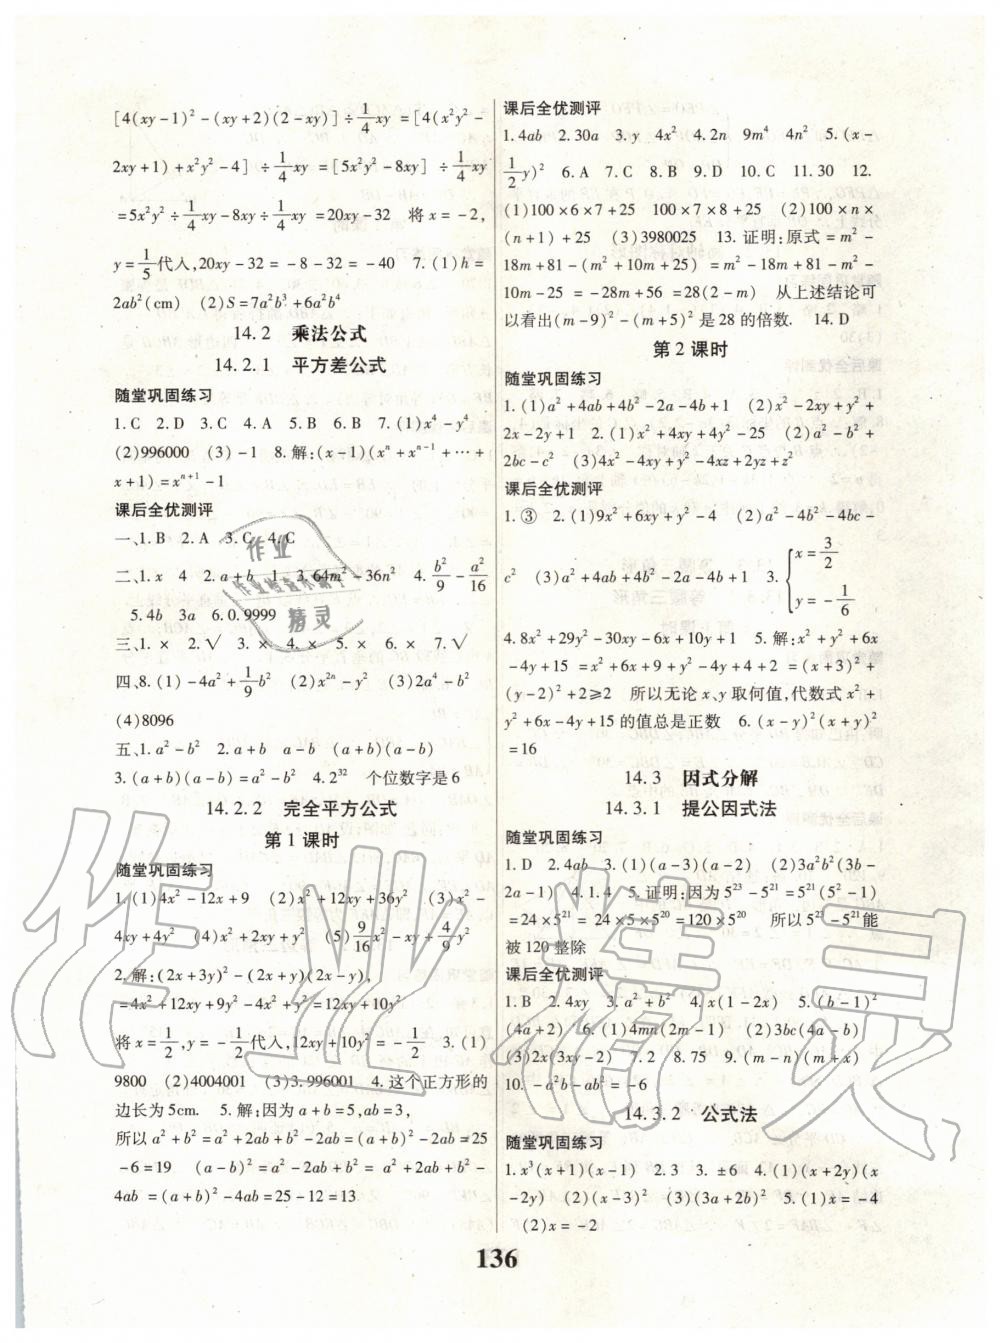 [4(xy-1)²-(xy+2)(2-xy)]÷1/4xy=[4(x²y²-
2xy+1)+x²y²-4]÷1/4xy=[5x²y²-8xy]÷1/4xy
=5x²y²÷1/4xy-8xy÷1/4xy=20xy-32 将x=-2,
y=1/5代入,20xy-32=-8-32=-40 7.(1)h=
2ab²(cm) (2)S=7a²b³+6a²b⁴
14.2 乘法公式
14.2.1 平方差公式
随堂巩固练习
1.C 2.D 3.C 4.A 5.B 6.B 7.(1)x⁴-y⁴
(2)996000 (3)-1 8.解:(x-1)(xⁿ+xⁿ⁻¹+…+
x+1)=xⁿ⁺¹-1
课后全优测评
一、1.B 2.A 3.C 4.C
二、1.x 4 2.a+b 1 3.64m²-36n² 4.b²/9-a²/16
5.4b 3a 6.0.9999
三、1.× 2.√ 3.× 4.× 5.× 6.× 7.√
四、8.(1)-4a²+1/9b² (2)x²ⁿ-y² (3)2a⁴-6a²
(4)8096
五、1.a²-b² 2.a+b a-b (a+b)(a-b)
3.(a+b)(a-b)=a²-b² 4.2³² 个位数字是6
14.2.2 完全平方公式
第1课时
随堂巩固练习
1.(1)4x²-12x+9 (2)x²+12xy+36y² (3)x²-
4xy+4y² (4)x²+2xy+y² (5)9/16x²-xy+4/9y²
2.解:(2x+3y)²-(2x+y)(2x-y),
=4x²+12xy+9y²-4x²+y²=12xy+10y²
将x=1/2,y=-1/2代入,12xy+10y²=-1/2 3.(1)
9800 (2)4004001 (3)3.996001 4.这个正方形的
边长为5cm. 5.解:因为a+b=5,ab=3,
所以a²+b²=a²+2ab+b²-2ab=(a+b)²-2ab=25
-6=19 (a-b)²=a²-2ab+b²=a²+2ab+b²-
4ab=(a+b)²-4ab=25-12=13
课后全优测评
1.4ab 2.30a 3.y 4x² 4.2n 9m⁴ 4n² 5.(x-
1/2y)² 6.A 7.C 8.B 9.D 10.C 11.30 12.
(1)100×6×7+25 100×7×8+25 (2)100×n×
(n+1)+25 (3)3980025 13.证明:原式=m²-
18m+81-(m²+10m+25)=m²-18m+81-m²-
10m-25=-28m+56=28(2-m) 从上述结论可
以看出(m-9)²-(m+5)²是28的倍数. 14.D
第2课时
随堂巩固练习
1.(1)a²+4ab+4b²-2a-4b+1 (2)x²-2xy+y²+
2x-2y+1 2.(1)x²+4xy+4y²-25 (2)a²-b²+
2bc-c² (3)4x²-4xy+y²-4xz+2yz+z²
课后全优测评
1.③ 2.(1)9x²+6xy+y²-4 (2)a²-4b²-4bc-
c² (3)a²+4ab+4b²-2a-4b+1 3.{x=3/2
y=-1/6
4.8x²+29y²-30xy-6x+10y+1 5.解:x²+y²+6x
-4y+15=x²+6x+9+y²-4y+4+2=(x+3)²+
(y-2)²+2≥2 所以无论x、y取何值,代数式x²+
y²+6x-4y+15的值总是正数 6.(x-y)²(x+y)²
=16
14.3 因式分解
14.3.1 提公因式法
随堂巩固练习
1.D 2.4ab 3.(1)(a-3)(a-2) (2)3a²b²(3b-
2a-1) 4.1.4 5.证明:因为5²³-5²¹=5²¹(5²-1)
=24×5²¹=24×5×5²⁰=120×5²⁰ 所以5²³-5²¹能
被120整除
课后全优测评
1.B 2.4xy 3.a²+b² 4.x(1-2x) 5.(b-1)²
(4a+2) 6.(1)4mn(2m-1) (2)3bc(4a-b)
(3)2x(3xy-2) 7.2 8.75 9.(m-n)(m+x)
10.-a²b-ab²=-6
14.3.2 公式法
随堂巩固练习
1.x³(x+1)(x-1) 2.3 3.±6 4.(1)(x+2y)(x
-2y) (2)(x-3)² (3)(3a+2b)² 5.(1)x=-4
(2)x=-2
136
作业
精灵
作业精灵